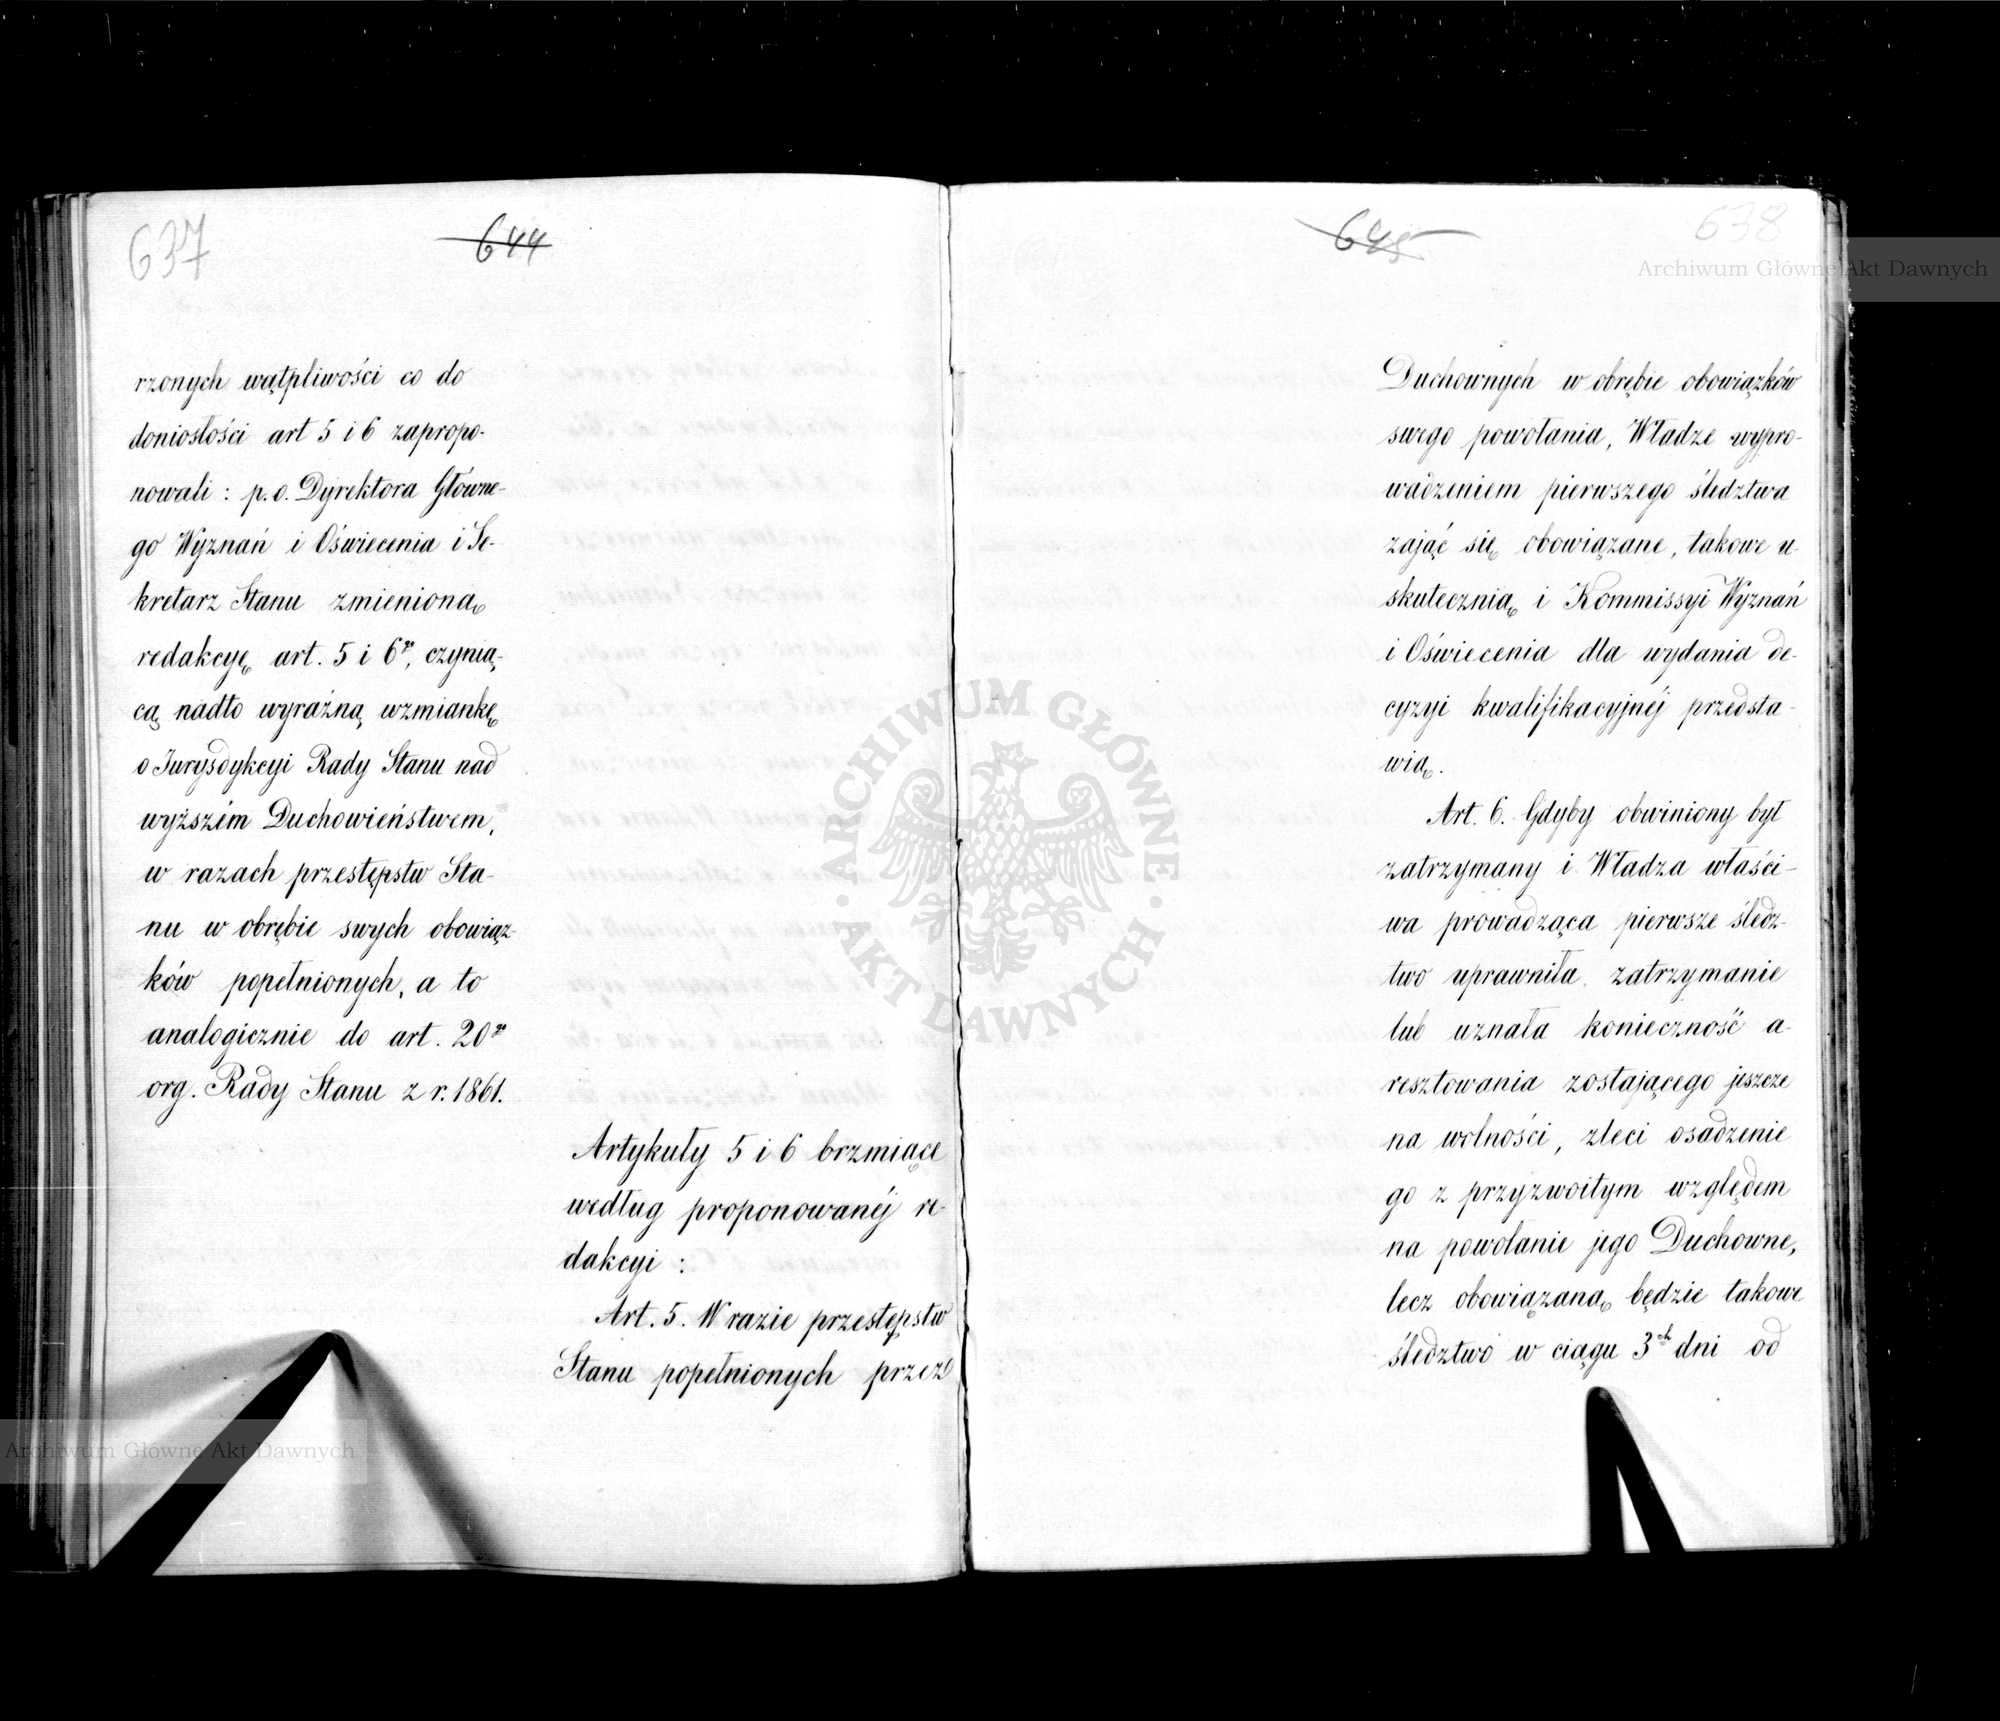 637
644
rzonych wątpliwości co do
doniosłości art 5 i 6 zapropo-
nowali : p. o. Dyrektora Główne-
go Wyznań i Oświecenia i Se-
kretarz Stanu zmienioną
redakcyę art. 5 i 6go, czynią-
cą nadto wyraźną wzmiankę
o Jurysdykcyi Rady Stanu nad
wyższém Duchowieństwem,
w razach przestępstw Sta-
nu w obrębie swych obowiąz-
ków popełnionych, a to
analogicznie do art. 20go
org. Rady Stanu z r. 1861.
Artykuły 5 i 6 brzmiące
według proponowanéj re-
dakcyi :
Art. 5. W razie przestępstw
Stanu popełnionych przez
645
638
Duchownych w obrębie obowiązków
swego powołania, Władze wypro-
wadzeniem pierwszego śledztwa
zająć się obowiązane, takowe u-
skutecznią i Kommissyi Wyznań
i Oświecenia dla wydania de-
cyzyi kwalifikacyjnéj przedsta-
wią.
Art. 6. Gdyby obwiniony był
zatrzymany i Władza właści-
wa prowadząca pierwsze śledz-
two uprawniła zatrzymanie
lub uznała konieczność a-
resztowania zostającego jeszcze
na wolności, zleci osadzenie
go z przyzwoitym względem
na powołanie jego Duchowne,
lecz obowiązaną będzie takowe
śledztwo w ciągu 3ch dni od
Archiwum Główne Akt Dawnych
ARCHIWUM GŁÓWNE
AKT DAWNYCH
Archiwum Główne Akt Dawnych